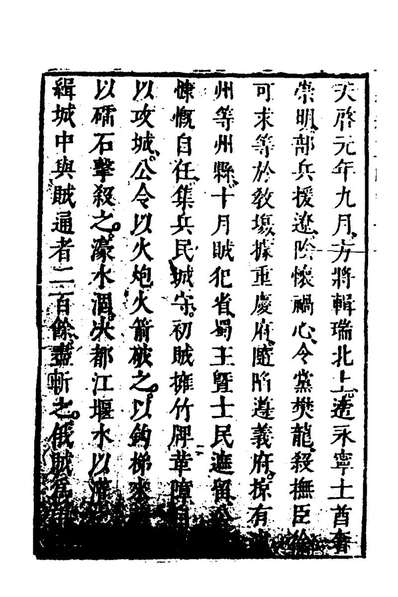 天啓元年九月方將輯瑞北上遭永寧土酋奢
崇明部兵援遼陰懷禍心令黨樊龍殺撫臣徐
可求等於敎塲據重慶府隨陷遵義府掠有
州等州縣十月賊犯省蜀王曁士民遮留
慷慨自任集兵民城守初賊擁竹牌革障
以攻城公令以火炮火箭破之以鈎梯來
以礌石擊殺之濠水涸決都江堰水以
緝城中與賊通者二百餘盡斬之俄賊